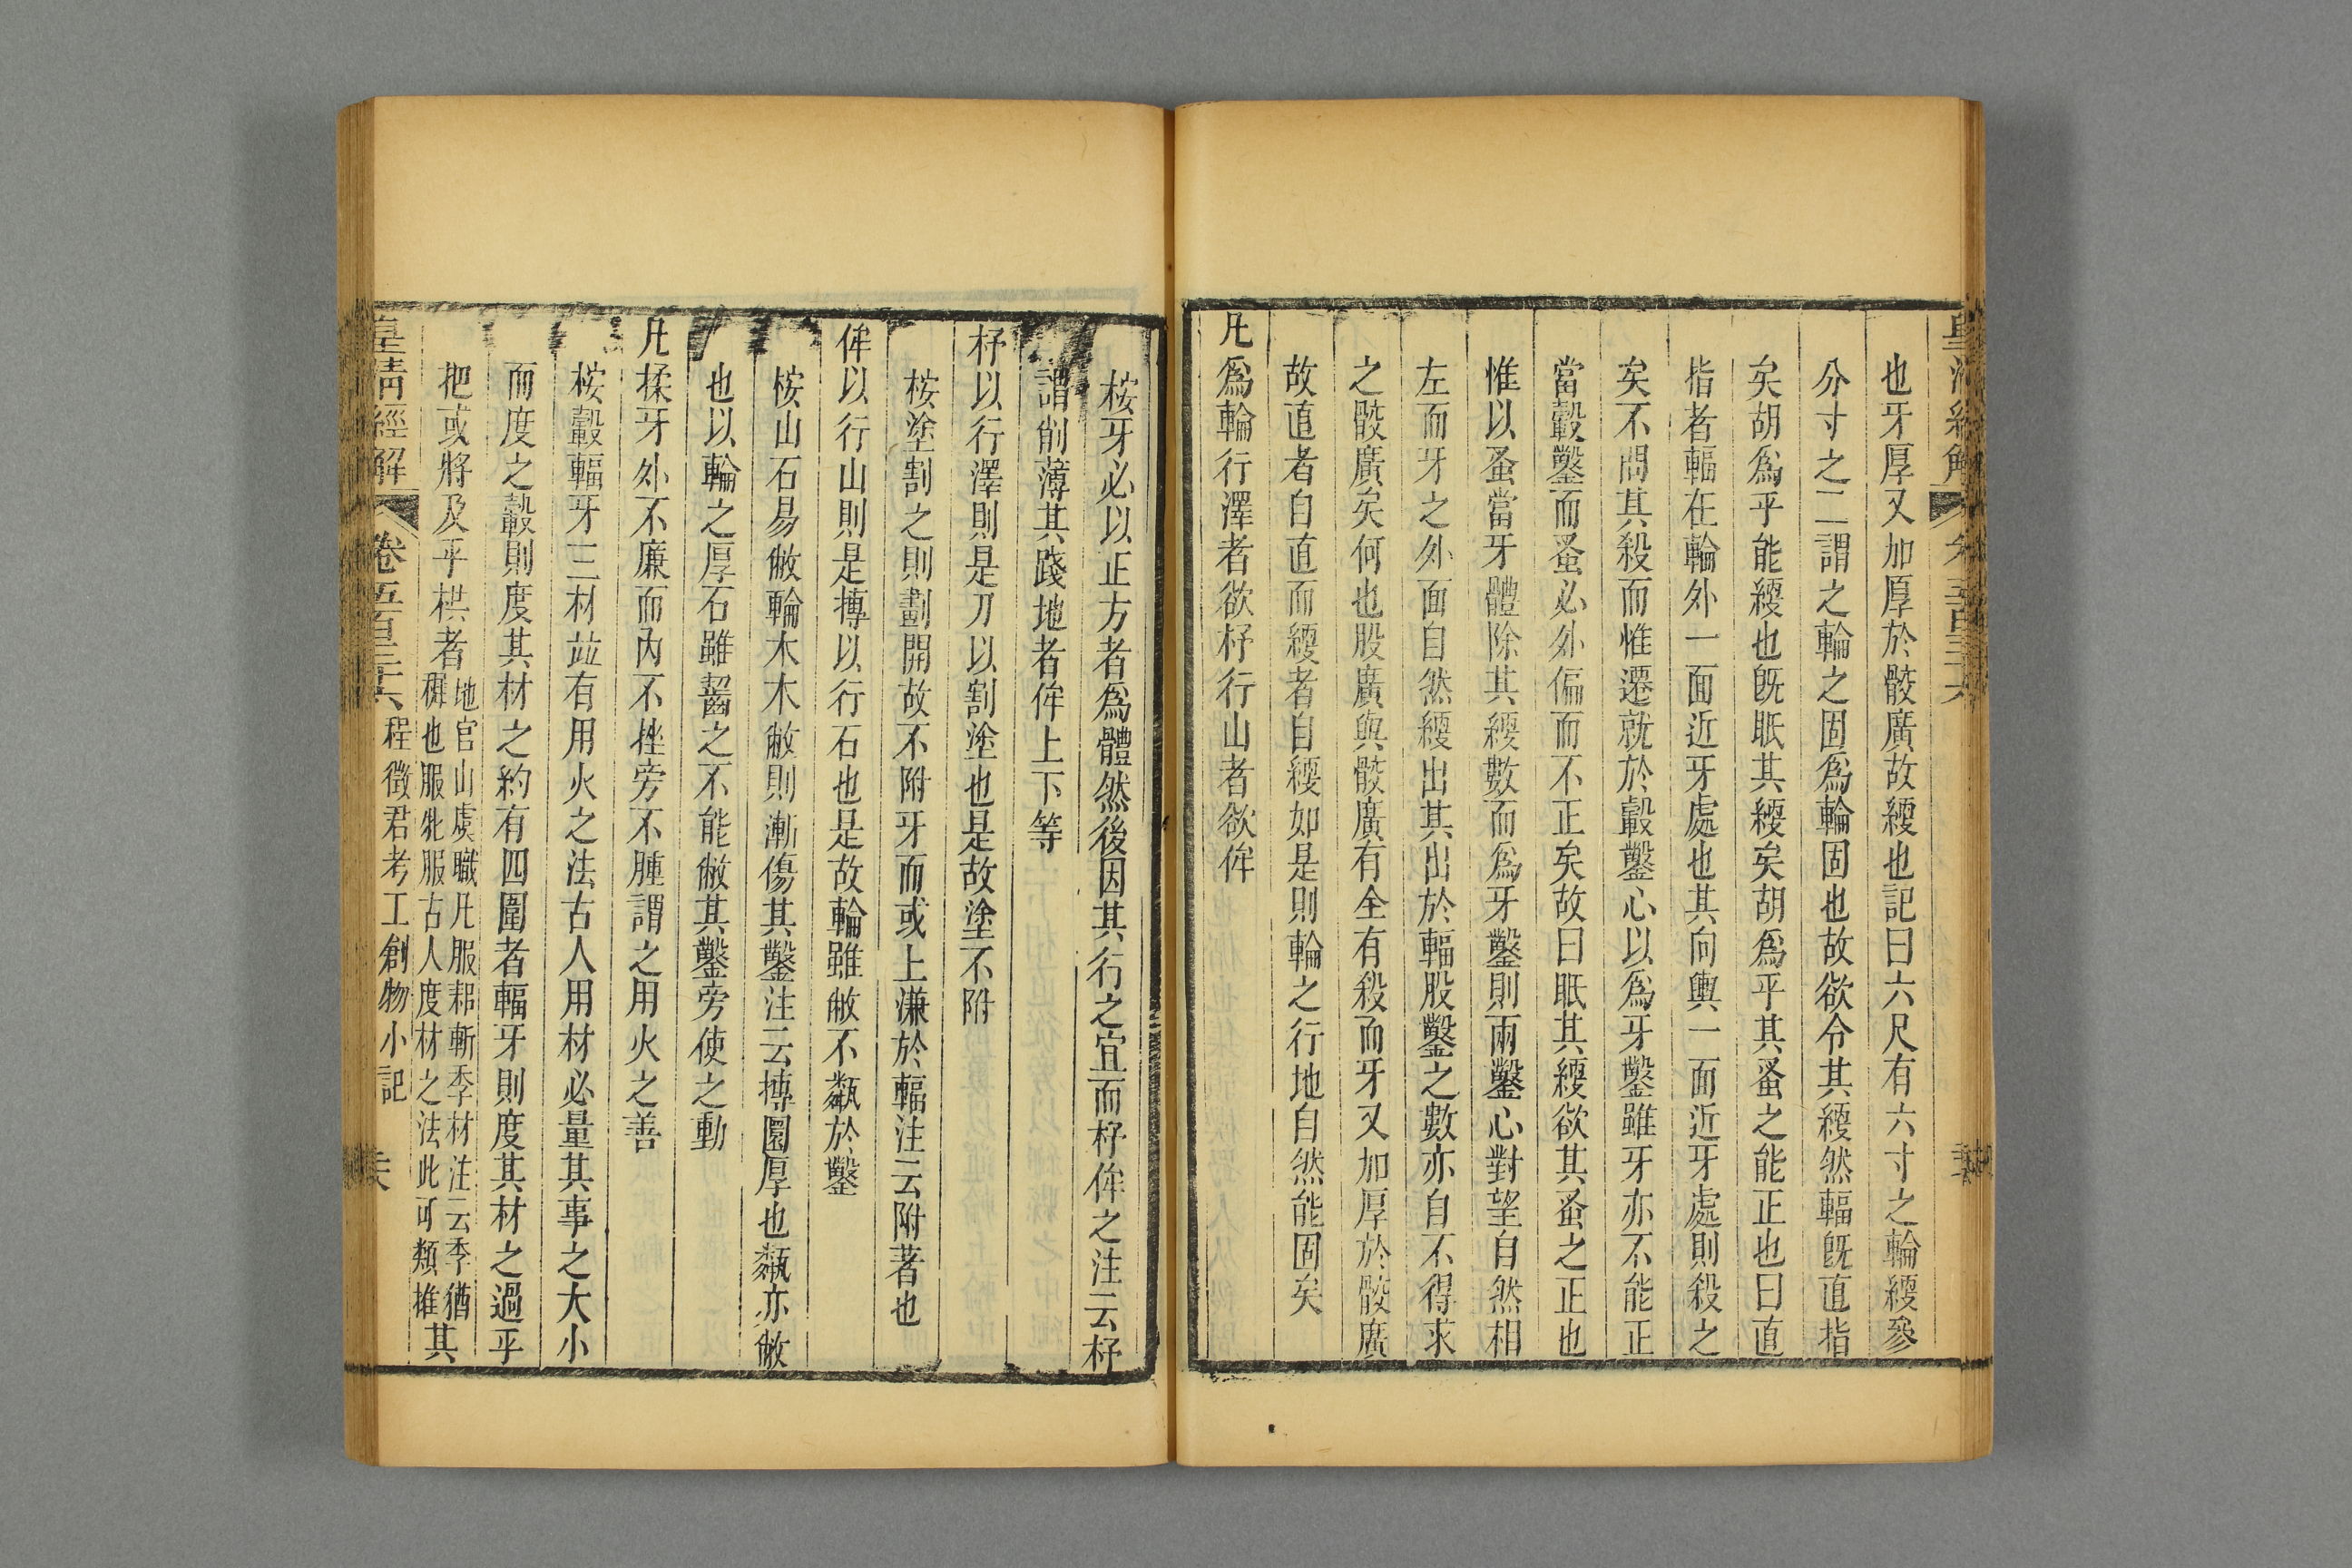 皇清經解 卷五百三十六
也牙厚又加厚於骹廣故綆也記曰六尺有六寸之輪綆參
分寸之二謂之輪之固爲輪固也故欲令其綆然輻旣直指
矣胡爲乎能綆也旣眡其綆矣胡爲乎其蚤之能正也曰直
指者輻在輪外一面近牙處也其向輿一面近牙處則殺之
矣不問其殺而惟遷就於轂鑿心以爲牙鑿雖牙亦不能正
當轂鑿而蚤必外偏而不正矣故曰眡其綆欲其蚤之正也
惟以蚤當牙體除其綆數而爲牙鑿則兩鑿心對望自然相
左而牙之外面自然綆出其出於輻股鑿之數亦自不得求
之骹廣矣何也股廣與骹廣有全有殺而牙又加厚於骹廣
故直者自直而綆者自綆如是則輪之行地自然能固矣
凡爲輪行澤者欲杼行山者欲侔
桉牙必以正方者爲體然後因其行之宜而杼侔之注云杼
謂削薄其踐地者侔上下等
杼以行澤則是刀以割塗也是故塗不附
桉塗割之則劃開故不附牙而或上溓於輻注云附著也
侔以行山則是摶以行石也是故輪雖敝不甐於鑿
桉山石易敝輪木木敝則漸傷其鑿注云摶圜厚也甐亦敝
也以輪之厚石雖齧之不能敝其鑿旁使之動
凡揉牙外不廉而內不挫旁不腫謂之用火之善
桉轂輻牙三材竝有用火之法古人用材必量其事之大小
而度之轂則度其材之約有四圍者輻牙則度其材之過乎
把或將及乎栱者地官山虞職凡服耜斬季材注云季猶穉也服牝服古人度材之法此可類推其
皇清經解 卷五百三十六 程徵君考工創物小記